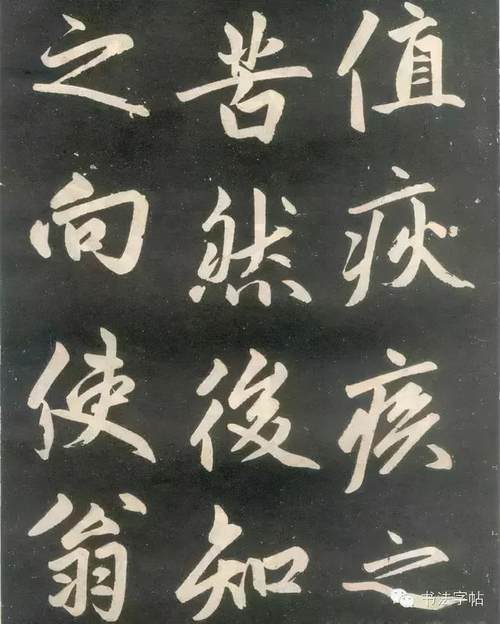 值疢疾之
苦然後知
之向使翁
书法字帖